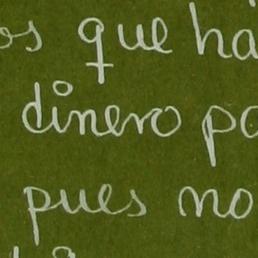 os que há
dinero po
pues no